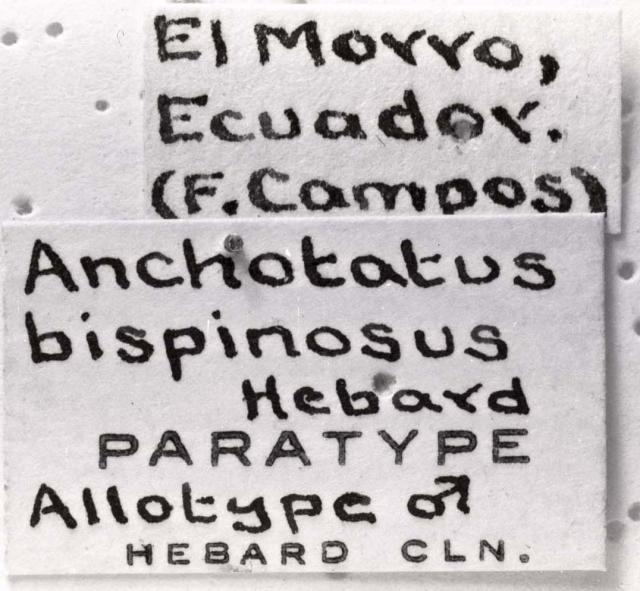 El Morro,
Ecuador.
(F. Campos)
Anchotatus
bispinosus
Hebard
PARATYPE
Allotype ♂
HEBARD CLN.